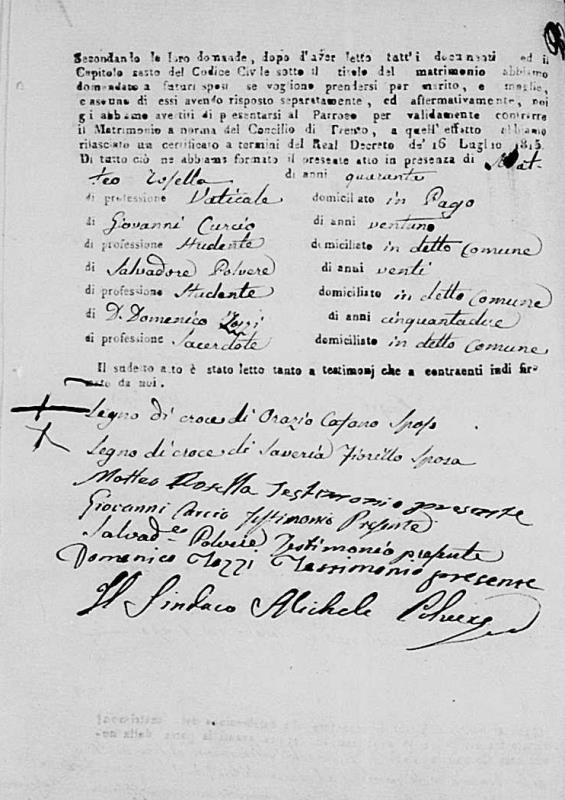 Secondando le loro domande, dopo d'aver letto tutt'i documenti ed il
Capitolo sesto del Codice Civile sotto il titolo del matrimonio abbiamo
domandato a futuri sposi se vogliono prendersi per marito, e moglie,
ciascuno di essi avendo risposto separatamente, ed affermativamente, noi
gli abbiamo avertiti di presentarsi al Parroco per validamente contrarre
il Matrimonio a norma del Concilio di Trento, a quell'effetto abbiamo
rilasciato un certificato a termini del Real Decreto de' 16 Luglio 1815.
Di tutto ciò ne abbiamo formato il presente atto in presenza di Mat-
teo Rosella di anni quaranta
di professione Vaticale domiciliato in Pago
di Giovanni Curcio di anni ventuno
di professione Studente domiciliato in detto Comune
di Salvadore Polvere di anni venti
di professione Studente domiciliato in detto Comune
di D. Domenico Iozzi di anni cinquantadue
di professione Sacerdote domiciliato in detto Comune
Il sudetto atto è stato letto tanto a testimonj che a contraenti indi fir-
mato da noi.
Segno di croce di Orazio Cafano Sposo
Segno di croce di Saveria Fiorillo Sposa
Matteo Rosella Testimonio presente
Giovanni Curcio Testimonio Presente
Salvad.e Polvere Testimonio presente
Domenico Iozzi Testimonio presente
Il Sindaco Michele Polvere